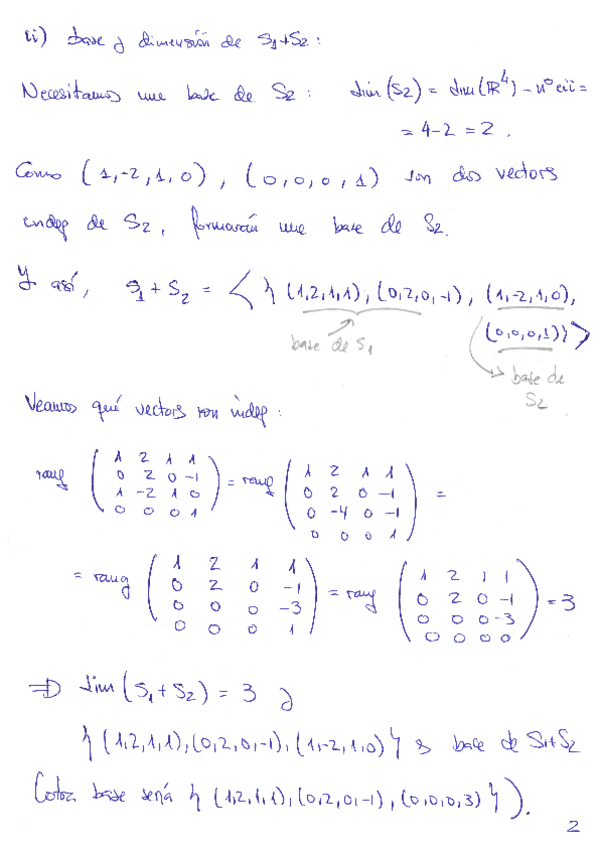 ii) base y dimensión de S₁+S₂ :
Necesitamos una base de S₂ : dim (S₂) = dim (ℝ⁴) - nº ecii =
= 4-2 = 2 .
Como (1,-2,1,0) , (0,0,0,1) son dos vectors
indep de S₂, formarán una base de S₂.
Y así, S₁ + S₂ = < { (1,2,1,1), (0,2,0,-1), (1,-2,1,0),
(0,0,0,1)} >
base de S₁
base de
S₂
Veamos qué vectors son indep :
rang ( 1 2 1 1 ; 0 2 0 -1 ; 1 -2 1 0 ; 0 0 0 1 ) = rang ( 1 2 1 1 ; 0 2 0 -1 ; 0 -4 0 -1 ; 0 0 0 1 ) =
= rang ( 1 2 1 1 ; 0 2 0 -1 ; 0 0 0 -3 ; 0 0 0 1 ) = rang ( 1 2 1 1 ; 0 2 0 -1 ; 0 0 0 -3 ; 0 0 0 0 ) = 3
⇒ dim (S₁ + S₂) = 3 y
{ (1,2,1,1), (0,2,0,-1), (1,-2,1,0) } es base de S₁+S₂
(otra base sería { (1,2,1,1), (0,2,0,-1), (0,0,0,3) } ).
2